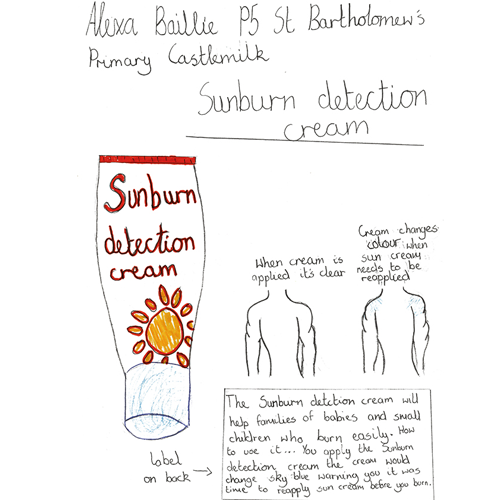 Alexa Baillie P5 St Bartholomew's
Primary Castlemilk
Sunburn detection
cream
Sunburn
detection
cream
When cream is
applied it's clear
Cream changes
colour when
sun cream
needs to be
reapplied
label
on back →
The Sunburn detction cream will
help families of babies and small
children who burn easily. How
to use it... You apply the Sunburn
detection cream the cream would
change sky blue warning you it was
time to reapply sun cream before you burn.